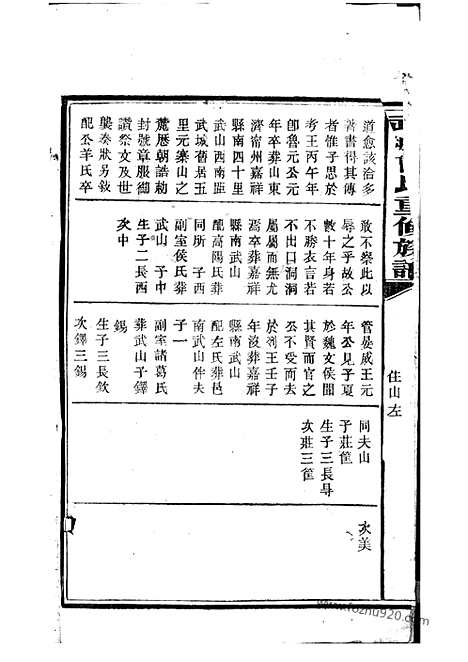 武城曾氏重修族譜
佳山左
道愈該洽多
著書得其傳
者惟子思於
考王丙午年
卽魯元公元
年卒葬山東
濟甯州嘉祥
縣南四十里
武山西南距
武城舊居五
里元寨山之
麓歷朝誥勅
封號章服御
讚祭文及世
襲奏狀另敘
配公羊氏卒
敢不察此以
辱之乎故公
數十年身若
不勝衣言若
不出口洞洞
屬屬而無尤
焉卒葬嘉祥
縣南武山
配高陽氏葬
同所 子西
副室侯氏葬
武山 子申
生子二長西
次申
管晏威王元
年公見子夏
於魏文侯聞
其賢而官之
公不受而去
於列王壬子
年沒葬嘉祥
縣南武山
配左氏葬邑
南武山伴夫
子一
副室諸葛氏
葬武山子鐸
錫
生子三長欽
次鐸三錫
同夫山
子莊筐
生子三長
次莊三筐
次美
www.fozhu920.com